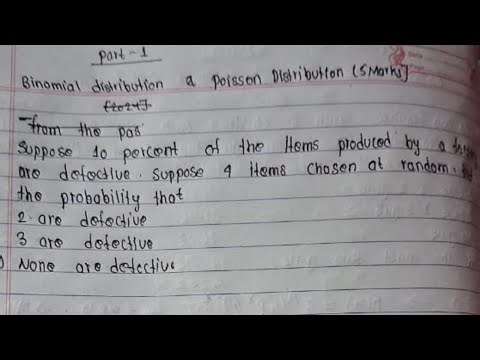 Part - 1
Binomial distribution a poisson Distribution (5 Marks]
[2024]
from the pas
Suppose 10 percent of the Items produced by a
are defective. suppose 4 items chosen at random.
the probability that
2 are defective
3 are defective
None are defective